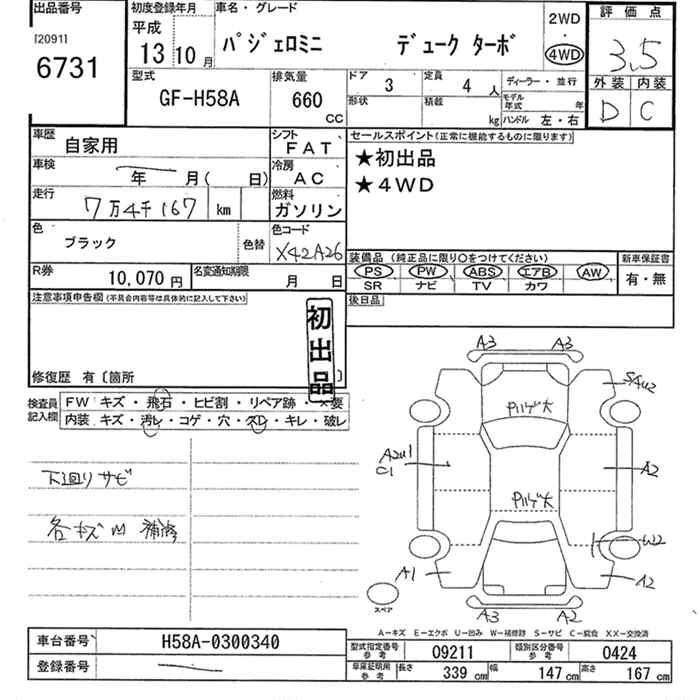 出品番号 初度登録年月 車名・グレード 2WD 評価点
[2091] 平成 パジェロミニ デューク ターボ
6731 13 10 月 4WD 3.5
型式 排気量 ドア 3 定員 4 人 ディーラー・並行 外装 内装
GF-H58A 660 CC 形状 積載 kg モデル年式 年 ハンドル 左・右 D C
車歴 自家用 シフト FAT セールスポイント(正常に機能するものに限ります)
車検 年 月( 日) 冷房 AC ★初出品
走行 7万4千167 km 燃料 ガソリン ★4WD
色 ブラック 色替 色コード X42A26
装備品 (純正品に限り○をつけてください) 新車保証書
R券 10,070 円 名変通知期限 月 日 PS PW ABS エアB AW 有・無
SR ナビ TV カワ
注意事項申告欄(不具合内容等は具体的に記入して下さい) 後日品
初出品
修復歴 有〔箇所 〕
検査員記入欄 FW キズ・飛石・ヒビ割・リペア跡・×要
内装 キズ・汚レ・コゲ・穴・スレ・キレ・破レ
A3 A3
S4U2
ハゲ大
A2U1 C1 A2
下廻りサビ
ハゲ大
各キズ凹 補修
W2
A1 A2
スペア
A3 A2
A－キズ E－エクボ U－凹み W－補修跡 S－サビ C－腐食 XX－交換済
車台番号 H58A-0300340 型式指定番号 参考 09211 類別区分番号 参考 0424
登録番号 車庫証明用 参考 長さ 339 cm 幅 147 cm 高さ 167 cm